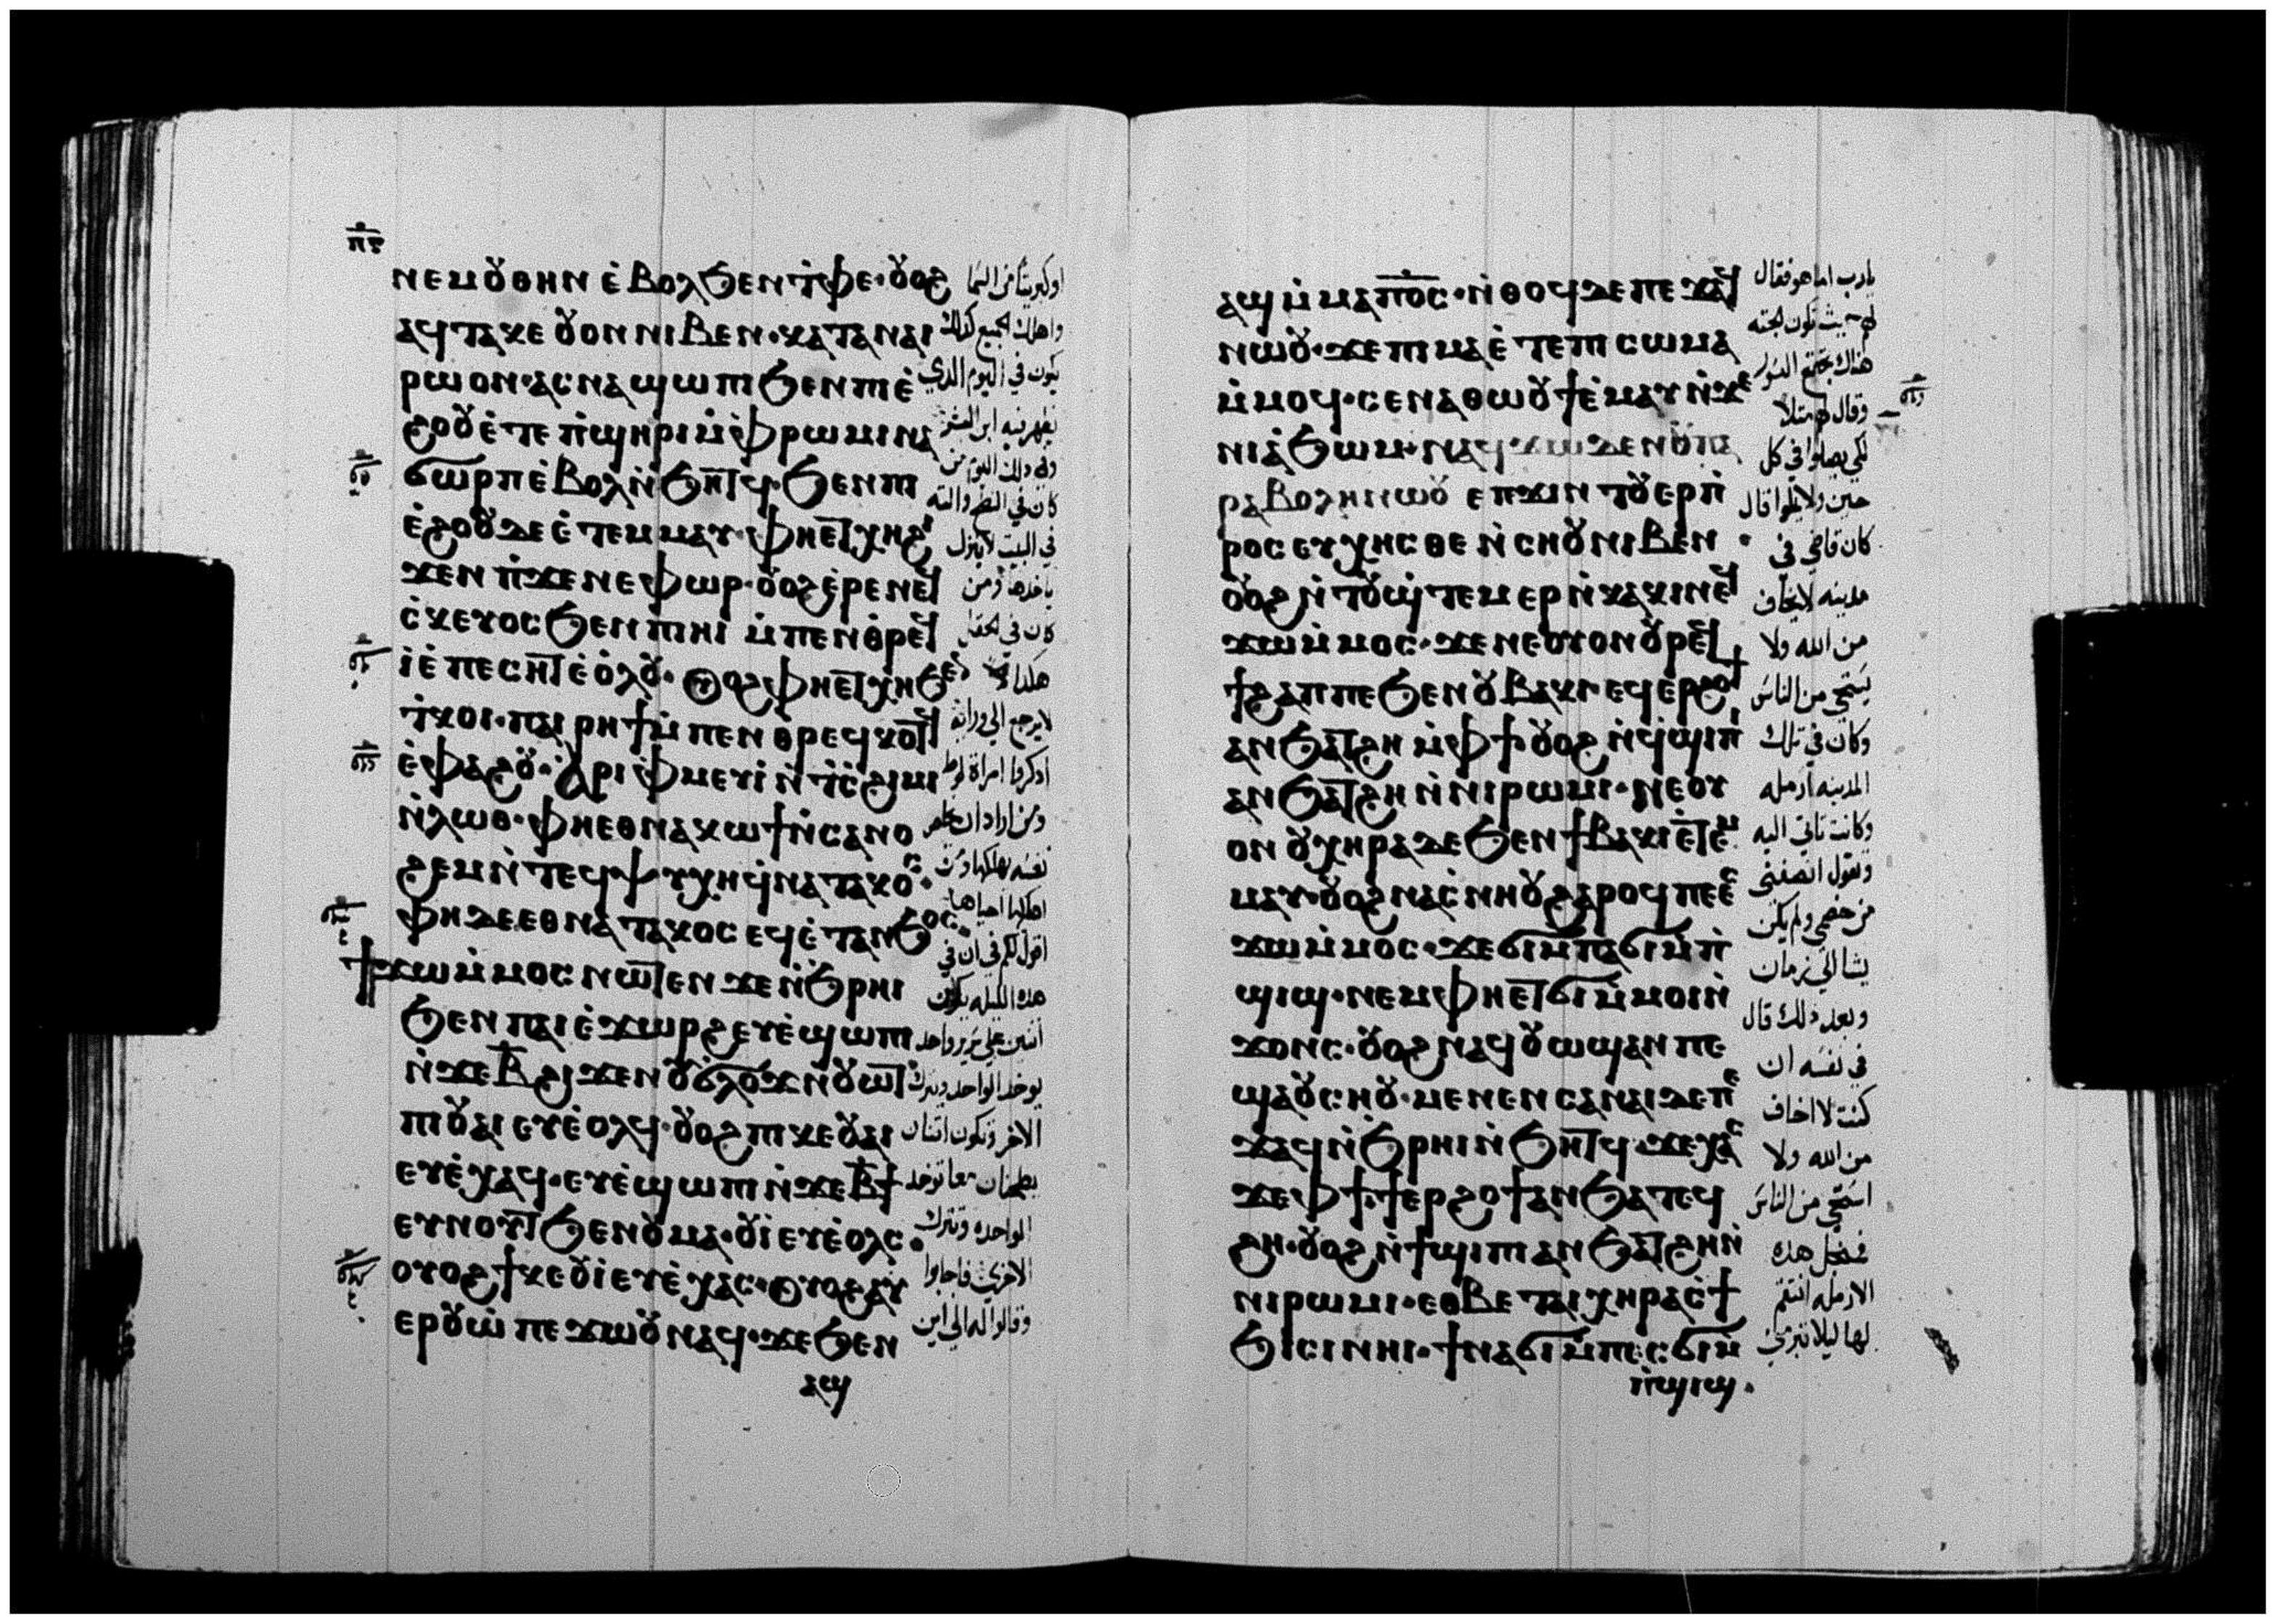 ⲡ̅ⲋ̅
ⲛⲉⲙⲟⲩⲑⲏⲛ ⲉ̀ⲃⲟⲗϧⲉⲛⲧ̀ⲫⲉ·ⲟⲩⲟϩ
ⲁϥⲧⲁⲕⲉ ⲟⲩⲟⲛ ⲛⲓⲃⲉⲛ·ⲕⲁⲧⲁⲛⲁⲓ
ⲣⲱⲟⲛ·ⲁⲥⲛⲁϣⲱⲡⲓ ϧⲉⲛⲡⲓⲉ̀
ϩⲟⲟⲩ ⲉ̀ⲧⲉ ⲡ̀ϣⲏⲣⲓ ⲙ̀ⲫ̀ⲣⲱⲙⲓ ⲛⲁ
ϭⲱⲣⲡ ⲉ̀ⲃⲟⲗ ⲛ̀ϧⲏⲧϥ·ϧⲉⲛ ⲡⲓ
ⲉ̀ϩⲟⲟⲩ ⲇⲉ ⲉ̀ⲧⲉⲙⲙⲁⲩ·ⲫⲏⲉⲧⲭⲏ ϩⲓ
ϫⲉⲛ ⲡ̀ϫⲉⲛⲉⲫⲱⲣ·ⲟⲩⲟϩ ⲉ̀ⲣⲉ ⲛⲉϥ
ⲥ̀ⲕⲉⲩⲟⲥ ϧⲉⲛ ⲡⲓⲏⲓ ⲙ̀ⲡⲉⲛⲑ̀ⲣⲉϥ
ⲓ̀ ⲉ̀ⲡⲉⲥⲏⲧ ⲉ̀ⲟ̀ⲗⲟⲩ·ⲟⲩⲟϩ ⲫⲏⲉⲧⲭⲏ ϧⲉⲛ
ⲧ̀ⲕⲟⲓ·ⲡⲁⲓⲣⲏϯ ⲙ̀ⲡⲉⲛⲑⲣⲉϥⲕⲟⲧϥ
ⲉ̀ⲫⲁϩⲟⲩ·ⲁ̀ⲣⲓⲫ̀ⲙⲉⲩⲓ̀ ⲛ̀ⲧ̀ⲥ̀ϩⲓⲙⲓ
ⲛ̀ⲗⲱⲑ·ⲫⲏⲉⲑⲛⲁⲕⲱϯ ⲛ̀ⲥⲁⲛⲟ
ϩⲉⲙ ⲛ̀ⲧⲉϥⲯⲩⲭⲏ ϥ̀ⲛⲁⲧⲁⲕⲟⲥ·
ⲫⲏ ⲇⲉ ⲉⲑⲛⲁⲧⲁⲕⲟⲥ ⲉϥⲉ̀ⲧⲁⲛϧⲟⲥ·
ϯϫⲱⲙ̀ⲙⲟⲥ ⲛⲱⲧⲉⲛ ϫⲉ ⲛ̀ϧ̀ⲣⲏⲓ
ϧⲉⲛ ⲡⲁⲓⲉ̀ϫⲱⲣϩ ⲉⲩⲉ̀ϣⲱⲡⲓ
ⲛ̀ϫⲉ ⲃ̅ ϩⲓϫⲉⲛ ⲟⲩϭⲗⲟϫ ⲛ̀ⲟⲩⲱⲧ
ⲡⲓⲟⲩⲁⲓ ⲉⲩⲉ̀ⲟⲗϥ·ⲟⲩⲟϩ ⲡⲓⲕⲉⲟⲩⲁⲓ
ⲉⲩⲉ̀ⲭⲁϥ·ⲉⲩⲉ̀ϣⲱⲡⲓ ⲛ̀ϫⲉ ⲃ̅ϯ
ⲉⲩⲛⲟⲩⲧ ϧⲉⲛ ⲟⲩⲙⲁ·ⲟⲩⲓ̀ ⲉⲩⲉ̀ⲟⲗⲥ·
ⲟⲩⲟϩ ϯⲕⲉⲟⲩⲓ̀ ⲉⲩⲉ̀ⲭⲁⲥ·ⲟⲩⲟϩ ⲁⲩ
ⲉⲣⲟⲩⲱ̀ ⲡⲉϫⲱⲟⲩ ⲛⲁϥ·ϫⲉ ϧⲉⲛ
ⲁϣ
او كبريتا من السما
واهلك الجميع كذلك
يكون في اليوم الذي
يظهر فيه ابن البشر
وفي ذلك اليوم من
كان في السطح والته
في البيت لا ينزل
ياخدها ومن
كان في الحقل
هكذا
لا يرجع الي ورائه
اذكروا امراة لوط
ومن اراد ان يخلص
نفسه يهلكها ومن
اهلكها احياها
اقول لكم في ان في
هذه الليله يكون
اثنين علي سرير واحد
يوخذ الواحد ويترك
الاخر وتكون اثنتان
يطحنان معا توخذ
الواحده وتترك
الاخري فاجابوا
وقالوا له الي اين
ⲁϣ ⲙ̀ⲙⲁ ⲡ̅ⲟ̅ⲥ̅·ⲛ̀ⲑⲟϥ ⲇⲉ ⲡⲉϫⲁϥ
ⲛⲱⲟⲩ·ϫⲉ ⲡⲓⲙⲁ ⲉ̀ⲧⲉ ⲡⲓⲥⲱⲙⲁ
ⲙ̀ⲙⲟϥ·ⲥⲉⲛⲁⲑⲱⲟⲩϯ ⲉ̀ⲙⲁⲩ ⲛ̀ϫⲉ
ⲛⲓⲁ̀ϧⲱⲙ·ⲛⲁϥϫⲱ ⲇⲉ ⲛⲟⲩⲡⲁ
ⲣⲁⲃⲟⲗⲏ ⲛⲱⲟⲩ ⲉⲡϫⲓⲛⲧⲟⲩⲉⲣⲡ̀
ⲣⲟⲥⲉⲩⲭⲏⲥⲑⲉ ⲛ̀ⲥⲏⲟⲩ ⲛⲓⲃⲉⲛ·
ⲟⲩⲟϩ ⲛ̀ⲧⲟⲩϣ̀ⲧⲉⲙⲉⲣⲛ̀ⲕⲁⲕⲓⲛ ⲉϥ
ϫⲱⲙ̀ⲙⲟⲥ·ϫⲉ ⲛⲉⲟⲩⲟⲛ ⲟⲩⲣⲉϥ
ϯϩⲁⲡ ⲡⲉ ϧⲉⲛ ⲟⲩⲃⲁⲕⲓ·ⲉϥⲉⲣϩⲟϯ
ⲁⲛ ϧⲁⲧϩⲏ ⲙ̀ⲫϯ ⲟⲩⲟϩ ⲛ̀ϥ̀ϣⲓⲡⲓ
ⲁⲛ ϧⲁⲧϩⲏ ⲛ̀ⲛⲓⲣⲱⲙⲓ·ⲛⲉⲟⲩ
ⲟⲛ ⲟⲩⲭⲏⲣⲁ ⲇⲉ ϧⲉⲛ ϯⲃⲁⲕⲓ ⲉⲧⲉⲙ
ⲙⲁⲩ·ⲟⲩⲟϩ ⲛⲁⲥ̀ⲛⲏⲟⲩ ϩⲁⲣⲟϥ ⲡⲉ ⲉⲥ
ϫⲱⲙ̀ⲙⲟⲥ·ϫⲉ ϭⲓⲙ̀ⲡⲁϭⲓⲙ̀ⲡ̀
ϣⲓϣ·ⲛⲉⲙ ⲫⲏⲉⲧϭⲓ ⲙ̀ⲙⲟⲓ ⲛ̀
ϫⲟⲛⲥ·ⲟⲩⲟϩ ⲛⲁϥⲟⲩⲱϣ ⲁⲛ ⲡⲉ
ϣⲁ ⲟⲩⲥⲏⲟⲩ·ⲙⲉⲛⲉⲛⲥⲁⲛⲁⲓ ⲇⲉ ⲡⲉ
ϫⲁϥ ⲛ̀ϧ̀ⲣⲏⲓ ⲛ̀ϧⲏⲧϥ·ϫⲉ ⲕⲁⲥ
ϫⲉ ⲫϯ·ϯⲉⲣϩⲟϯ ⲁⲛ ϧⲁⲧⲉϥ
ϩⲏ·ⲟⲩⲟϩ ⲛ̀ϯϣⲓⲡⲓ ⲁⲛ ϧⲁⲧϩⲏ ⲛ̀
ⲛⲓⲣⲱⲙⲓ·ⲉⲑⲃⲉ ⲧⲁⲓⲭⲏⲣⲁ ⲥ̀ϯ
ϧⲓⲥⲓ ⲛⲏⲓ·ϯⲛⲁϭⲓⲙ̀ⲡⲉⲥϭⲓⲙ̀
ⲡ̀ϣⲓϣ·
يا رب اما هو فقال
لهم حيث تكون الجثه
هناك تجتمع النسور
وقال لهم مثلا
لكي يصلوا في كل
حين ولا يملوا قال
كان قاضي في
مدينه لا يخاف
من الله ولا
يستحي من الناس
وكان في تلك
المدينه ارمله
وكانت تاتي اليه
وتقول انصفني
من خصمي ولم يكن
يشا الي زمان
وبعد ذلك قال
في نفسه ان
كنت لا اخاف
من الله ولا
استحي من الناس
فمن اجل هذه
الارمله انتقم
لها ليلا تبرمني